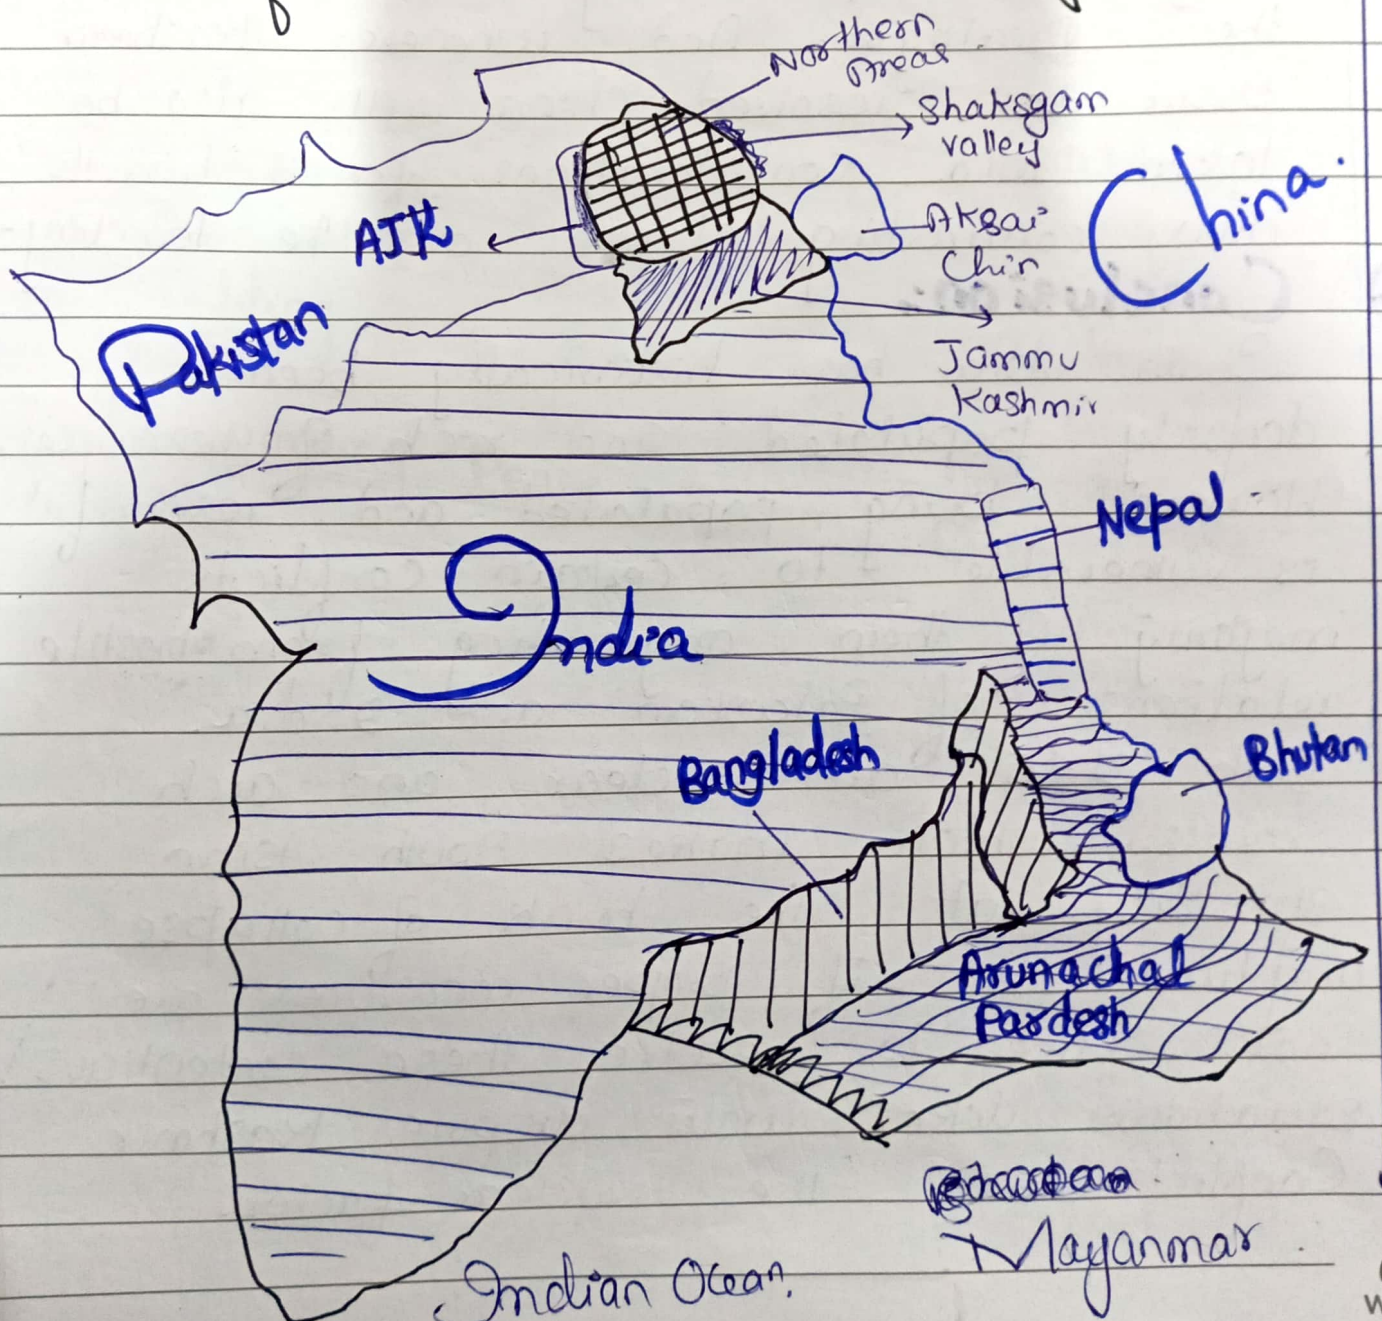 Northern
Areas
Shaksgam
valley
China.
AJK
Aksai
Chin
Pakistan
Jammu
Kashmir
Nepal
India
Bangladesh
Bhutan
Arunachal
Pardesh
Mayanmar
Indian Ocean.